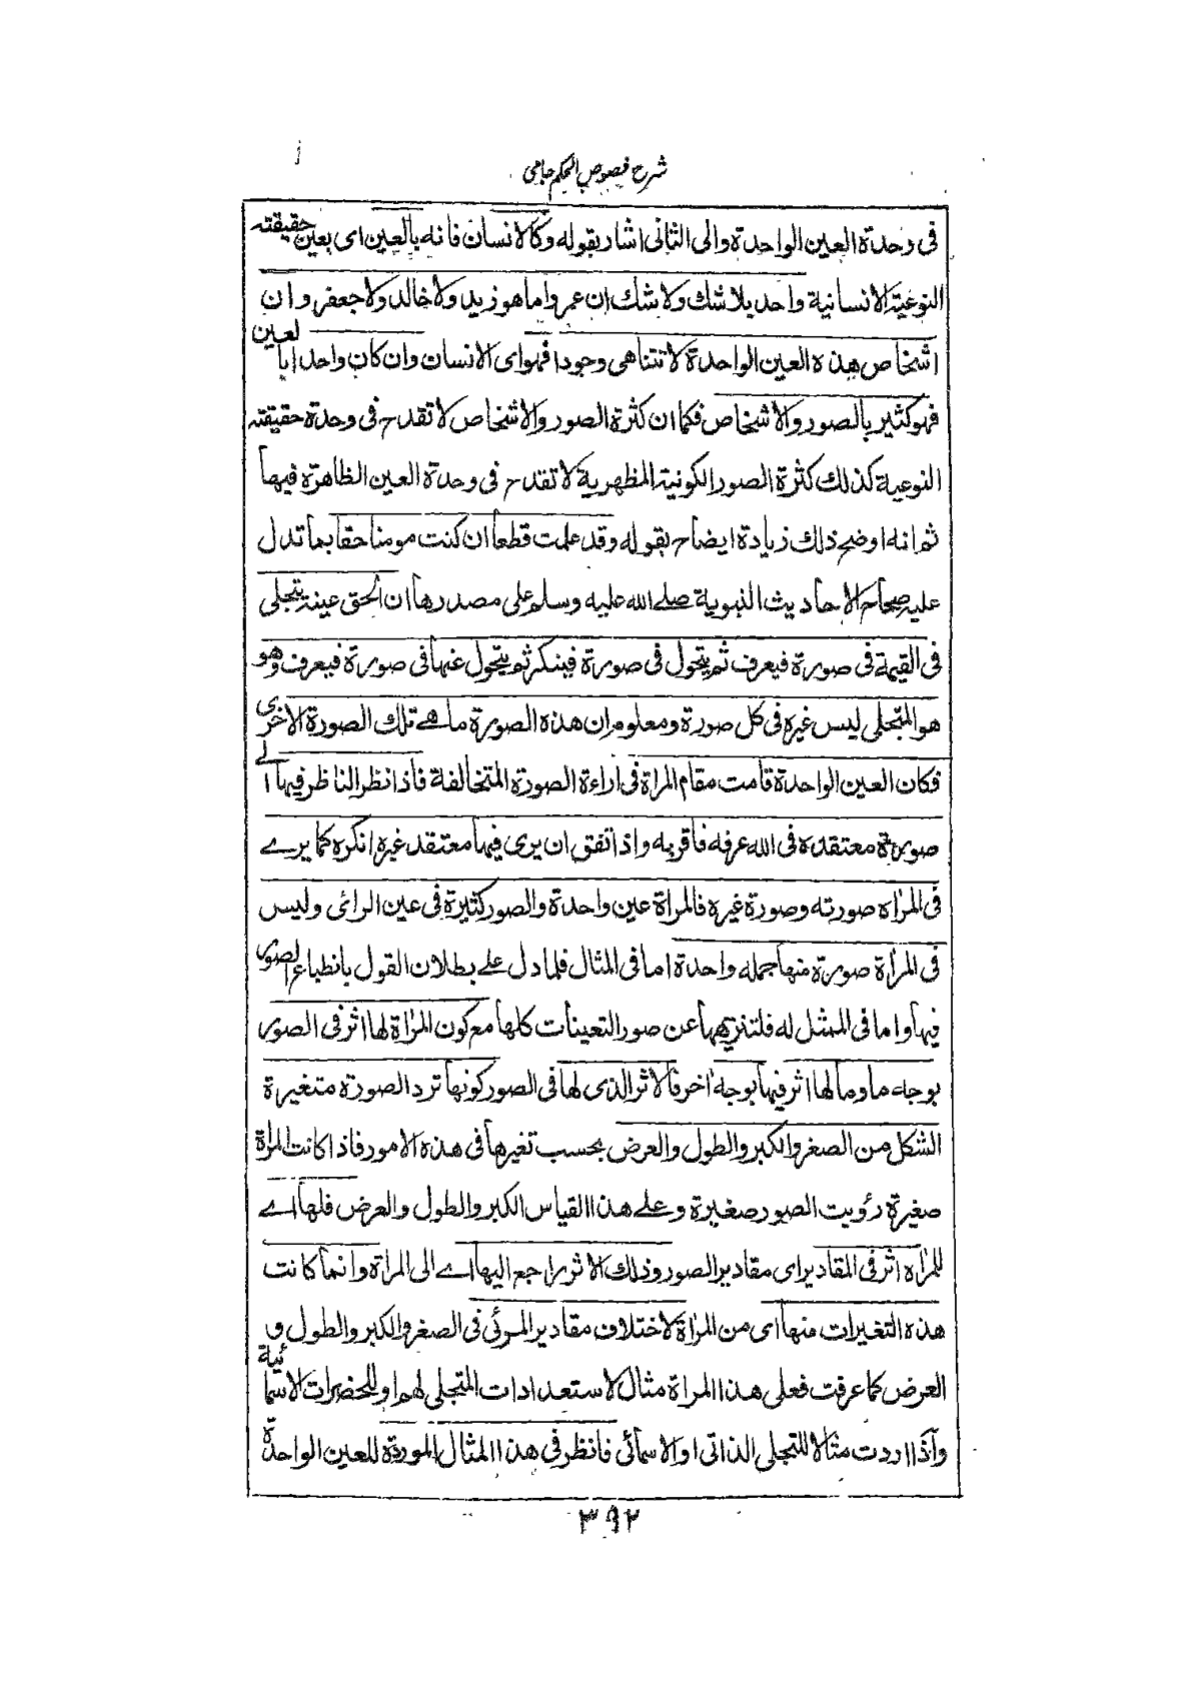 شرح فصوص الحكم جامى
فى وحدة العين الواحدة والى الثانى اشار بقوله وكالانسان فانه بالعين اى بعين حقيقته
النوعية الانسانية واحد بلا شك ولا شك ان عمروا ما هو زيد ولا خالد ولا جعفر وان
اشخاص هذه العين الواحدة لا تتناهى وجودا فهو اى الانسان وان كان واحدا بالعين
فهو كثير بالصور والاشخاص فكما ان كثرة الصور والاشخاص لا تقدح فى وحدة حقيقته
النوعية كذلك كثرة الصور الكونية المظهرية لا تقدح فى وحدة العين الظاهرة فيها
ثم انه اوضح ذلك زيادة ايضاح بقوله وقد علمت قطعا ان كنت مومنا حقا بما تدل
عليه صحاح الاحاديث النبوية صلے الله عليه وسلم على مصدرها ان الحق عينه يتجلى
فى القيمة فى صورة فيعرف ثم يتحول فى صورة فينكر ثم يتحول عنها فى صورة فيعرف وهو
هو المتجلى ليس غيره فى كل صورة ومعلوم ان هذه الصورة ما هے تلك الصورة الاخرى
فكان العين الواحدة قامت مقام المراة فى اراءة الصورة المتخالفة فاذا نظر الناظر فيها الے
صورة معتقده فى الله عرفه فاقر به واذا تفق ان يرى فيها معتقد غيره انكره كما يرے
فى المرأه صورته وصورة غيره فالمراة عين واحدة والصور كثيرة فى عين الرائى وليس
فى المرأة صورة منها جمله واحدة اما فى المثال فلما دل علے بطلان القول بانطباع الصور
فيها واما فى الممثل له فلتنزيهها عن صور التعينات كلها مع كون المرأة لها اثر فى الصور
بوجه ما وما لها اثر فيها بوجه اخر فالاثر الذى لها فى الصور كونها ترد الصورة متغيرة
الشكل من الصغر والكبر والطول والعرض بحسب تغيرها فى هذه الامور فاذا كانت المراة
صغيرة رؤيت الصور صغيرة وعلے هذا القياس الكبر والطول والعرض فلها اے
للمرأه اثر فى المقادير اى مقادير الصور وذلك الاثر راجع اليها اے الى المراة وانما كانت
هذه التغيرات منها اى من المرأة لاختلاف مقادير المرئى فى الصغر والكبر والطول و
العرض كما عرفت فعلى هذا المراة مثال لاستعدادات المتجلى لهم او للحضرات الاسمائية
واذا اردت مثالا للتجلى الذاتى او الاسمائى فانظر فى هذا المثال الموردة للعين الواحدة
٣٩٢